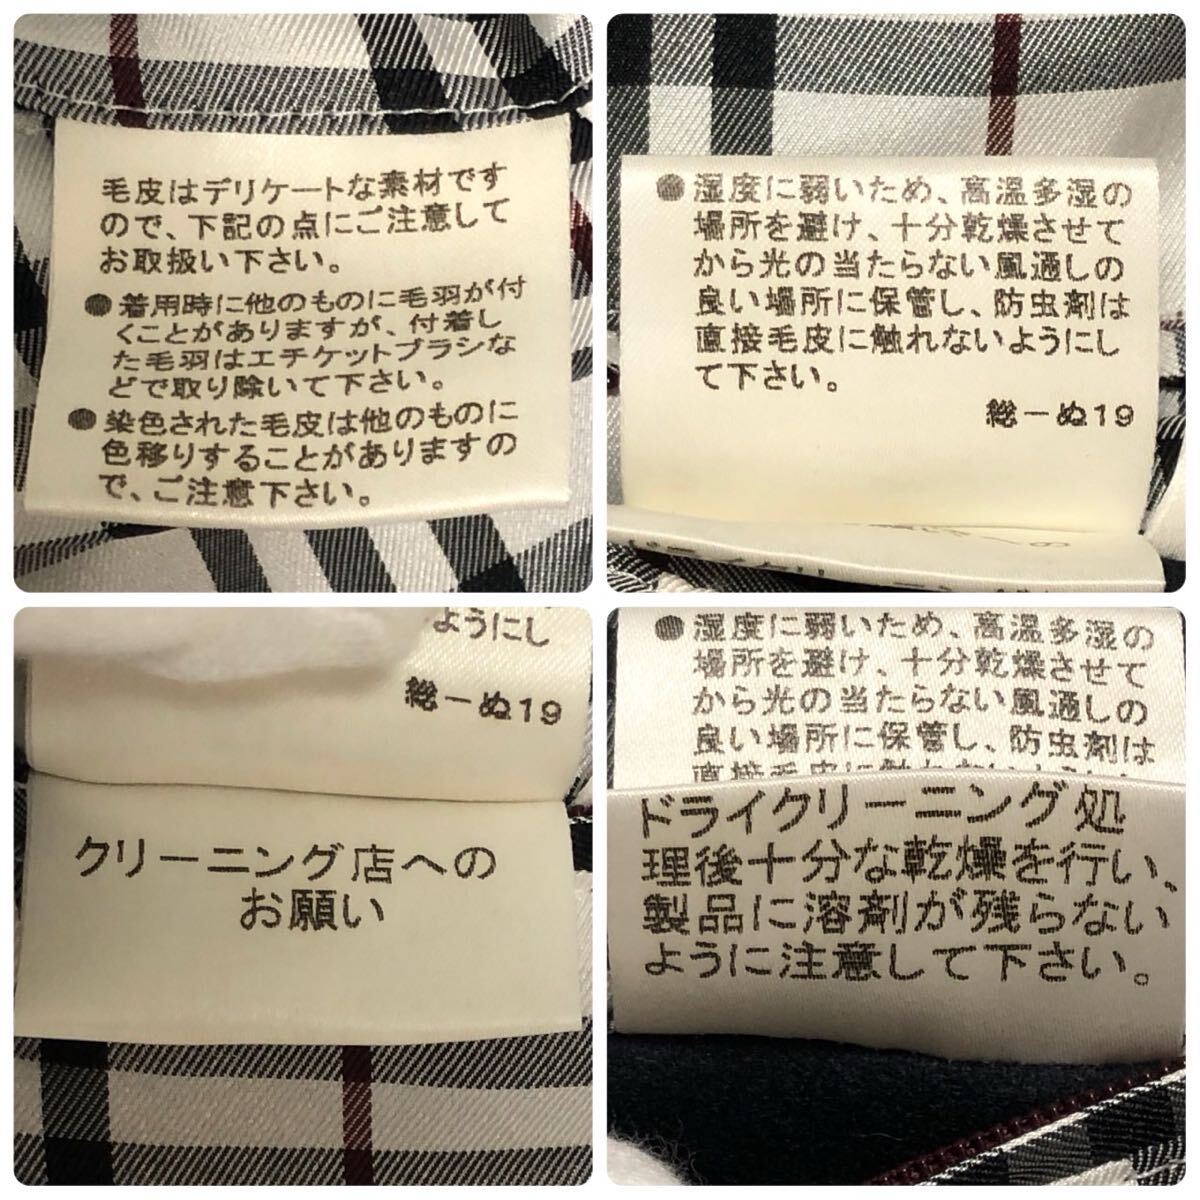 毛皮はデリケートな素材です
ので、下記の点にご注意して
お取扱い下さい。
●着用時に他のものに毛羽が付
くことがありますが、付着し
た毛羽はエチケットブラシな
どで取り除いて下さい。
●染色された毛皮は他のものに
色移りすることがありますの
で、ご注意下さい。
●湿度に弱いため、高温多湿の
場所を避け、十分乾燥させて
から光の当たらない風通しの
良い場所に保管し、防虫剤は
直接毛皮に触れないようにし
て下さい。
総ーぬ19
ようにし
総ーぬ19
クリーニング店への
お願い
●湿度に弱いため、高温多湿の
場所を避け、十分乾燥させて
から光の当たらない風通しの
良い場所に保管し、防虫剤は
直接毛皮に触れないようにし
ドライクリーニング処
理後十分な乾燥を行い、
製品に溶剤が残らない
ように注意して下さい。